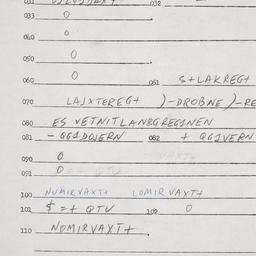 033 0
040 0
050 0
060 0 061 S+LAKREG+
070 LAJXTEREG+ )-DROBNE )-RE
080 ES VETNITLANRGREGINEN
081 - GG1DOJERN 082 + GG1VERN
090 0
091 0
100 NUMIRVAXT+ LOMIRVAYT+
101 $=+ QTU 102 0
110 NOMIRVAYI+